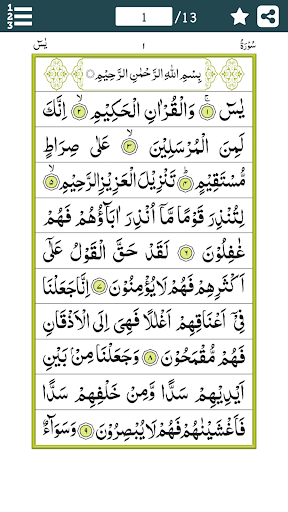 1
2
3
1 /13
يٰسٓ ١ سُوْرَةُ
بِسْمِ اللهِ الرَّحْمٰنِ الرَّحِيْمِ
يٰسٓ ۝١ وَالْقُرْاٰنِ الْحَكِيْمِ ۝٢ اِنَّكَ
لَمِنَ الْمُرْسَلِيْنَ ۝٣ عَلٰى صِرَاطٍ
مُّسْتَقِيْمٍ ۝٤ تَنْزِيْلَ الْعَزِيْزِ الرَّحِيْمِ ۝٥
لِتُنْذِرَ قَوْمًا مَّاۤ اُنْذِرَ اٰبَآؤُهُمْ فَهُمْ
غٰفِلُوْنَ ۝٦ لَقَدْ حَقَّ الْقَوْلُ عَلٰۤى
اَكْثَرِهِمْ فَهُمْ لَا يُؤْمِنُوْنَ ۝٧ اِنَّا جَعَلْنَا
فِيْۤ اَعْنَاقِهِمْ اَغْلٰلًا فَهِيَ اِلَى الْاَذْقَانِ
فَهُمْ مُّقْمَحُوْنَ ۝٨ وَجَعَلْنَا مِنْۢ بَيْنِ
اَيْدِيْهِمْ سَدًّا وَّمِنْ خَلْفِهِمْ سَدًّا
فَاَغْشَيْنٰهُمْ فَهُمْ لَا يُبْصِرُوْنَ ۝٩ وَسَوَآءٌ